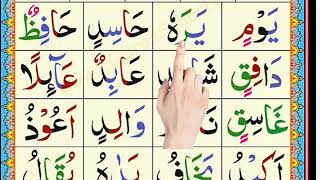 يَوْمٍ يَرَهٗ حَاسِدٍ حَافِظٌ
دَافِقٍ عَابِدٌ عَآئِلًا
غَاسِقٍ وَالِدٍ اَعُوْذُ
اَكِيْدُ يَخَافُ يُقَالُ